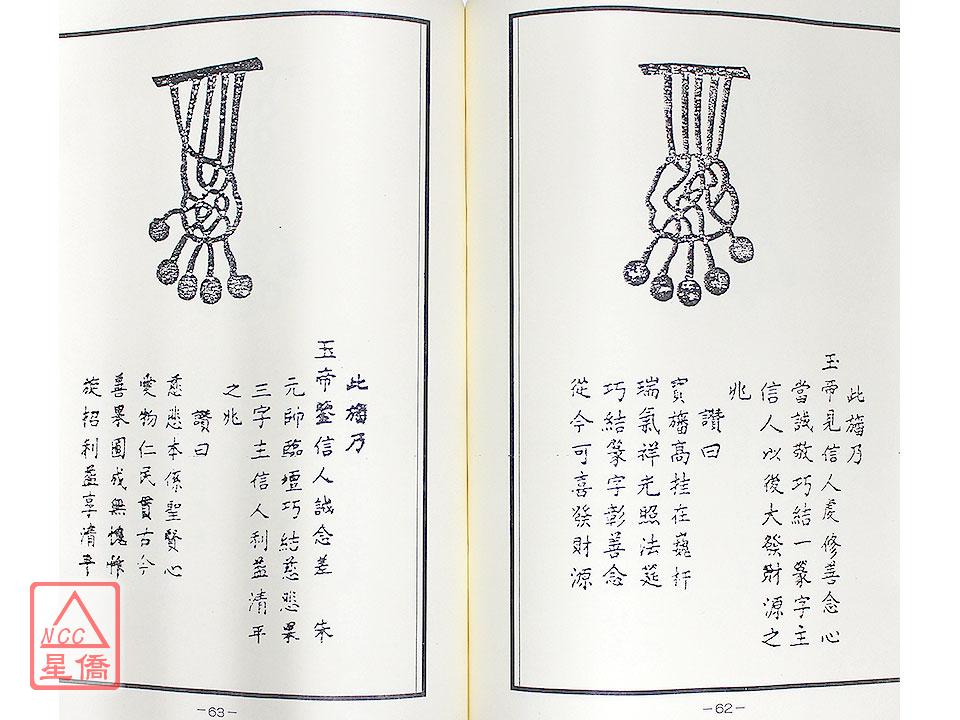 此旛乃
玉帝見信人虔修善念心
當誠敬巧結一篆字主
信人以後大發財源之
兆
讚曰
寶旛高挂在巍軒
瑞氣祥光照法筵
巧結篆字彰善念
從今可喜發財源
－62－
此旛乃
玉帝鑒信人誠念差 宋
元帥臨壇巧結慈悲果
三字主信人利益清平
之兆
讚曰
慈悲本係聖賢心
愛物仁民貫古今
善果圓成無愧怍
旋招利益享清平
－63－
NCC
星僑